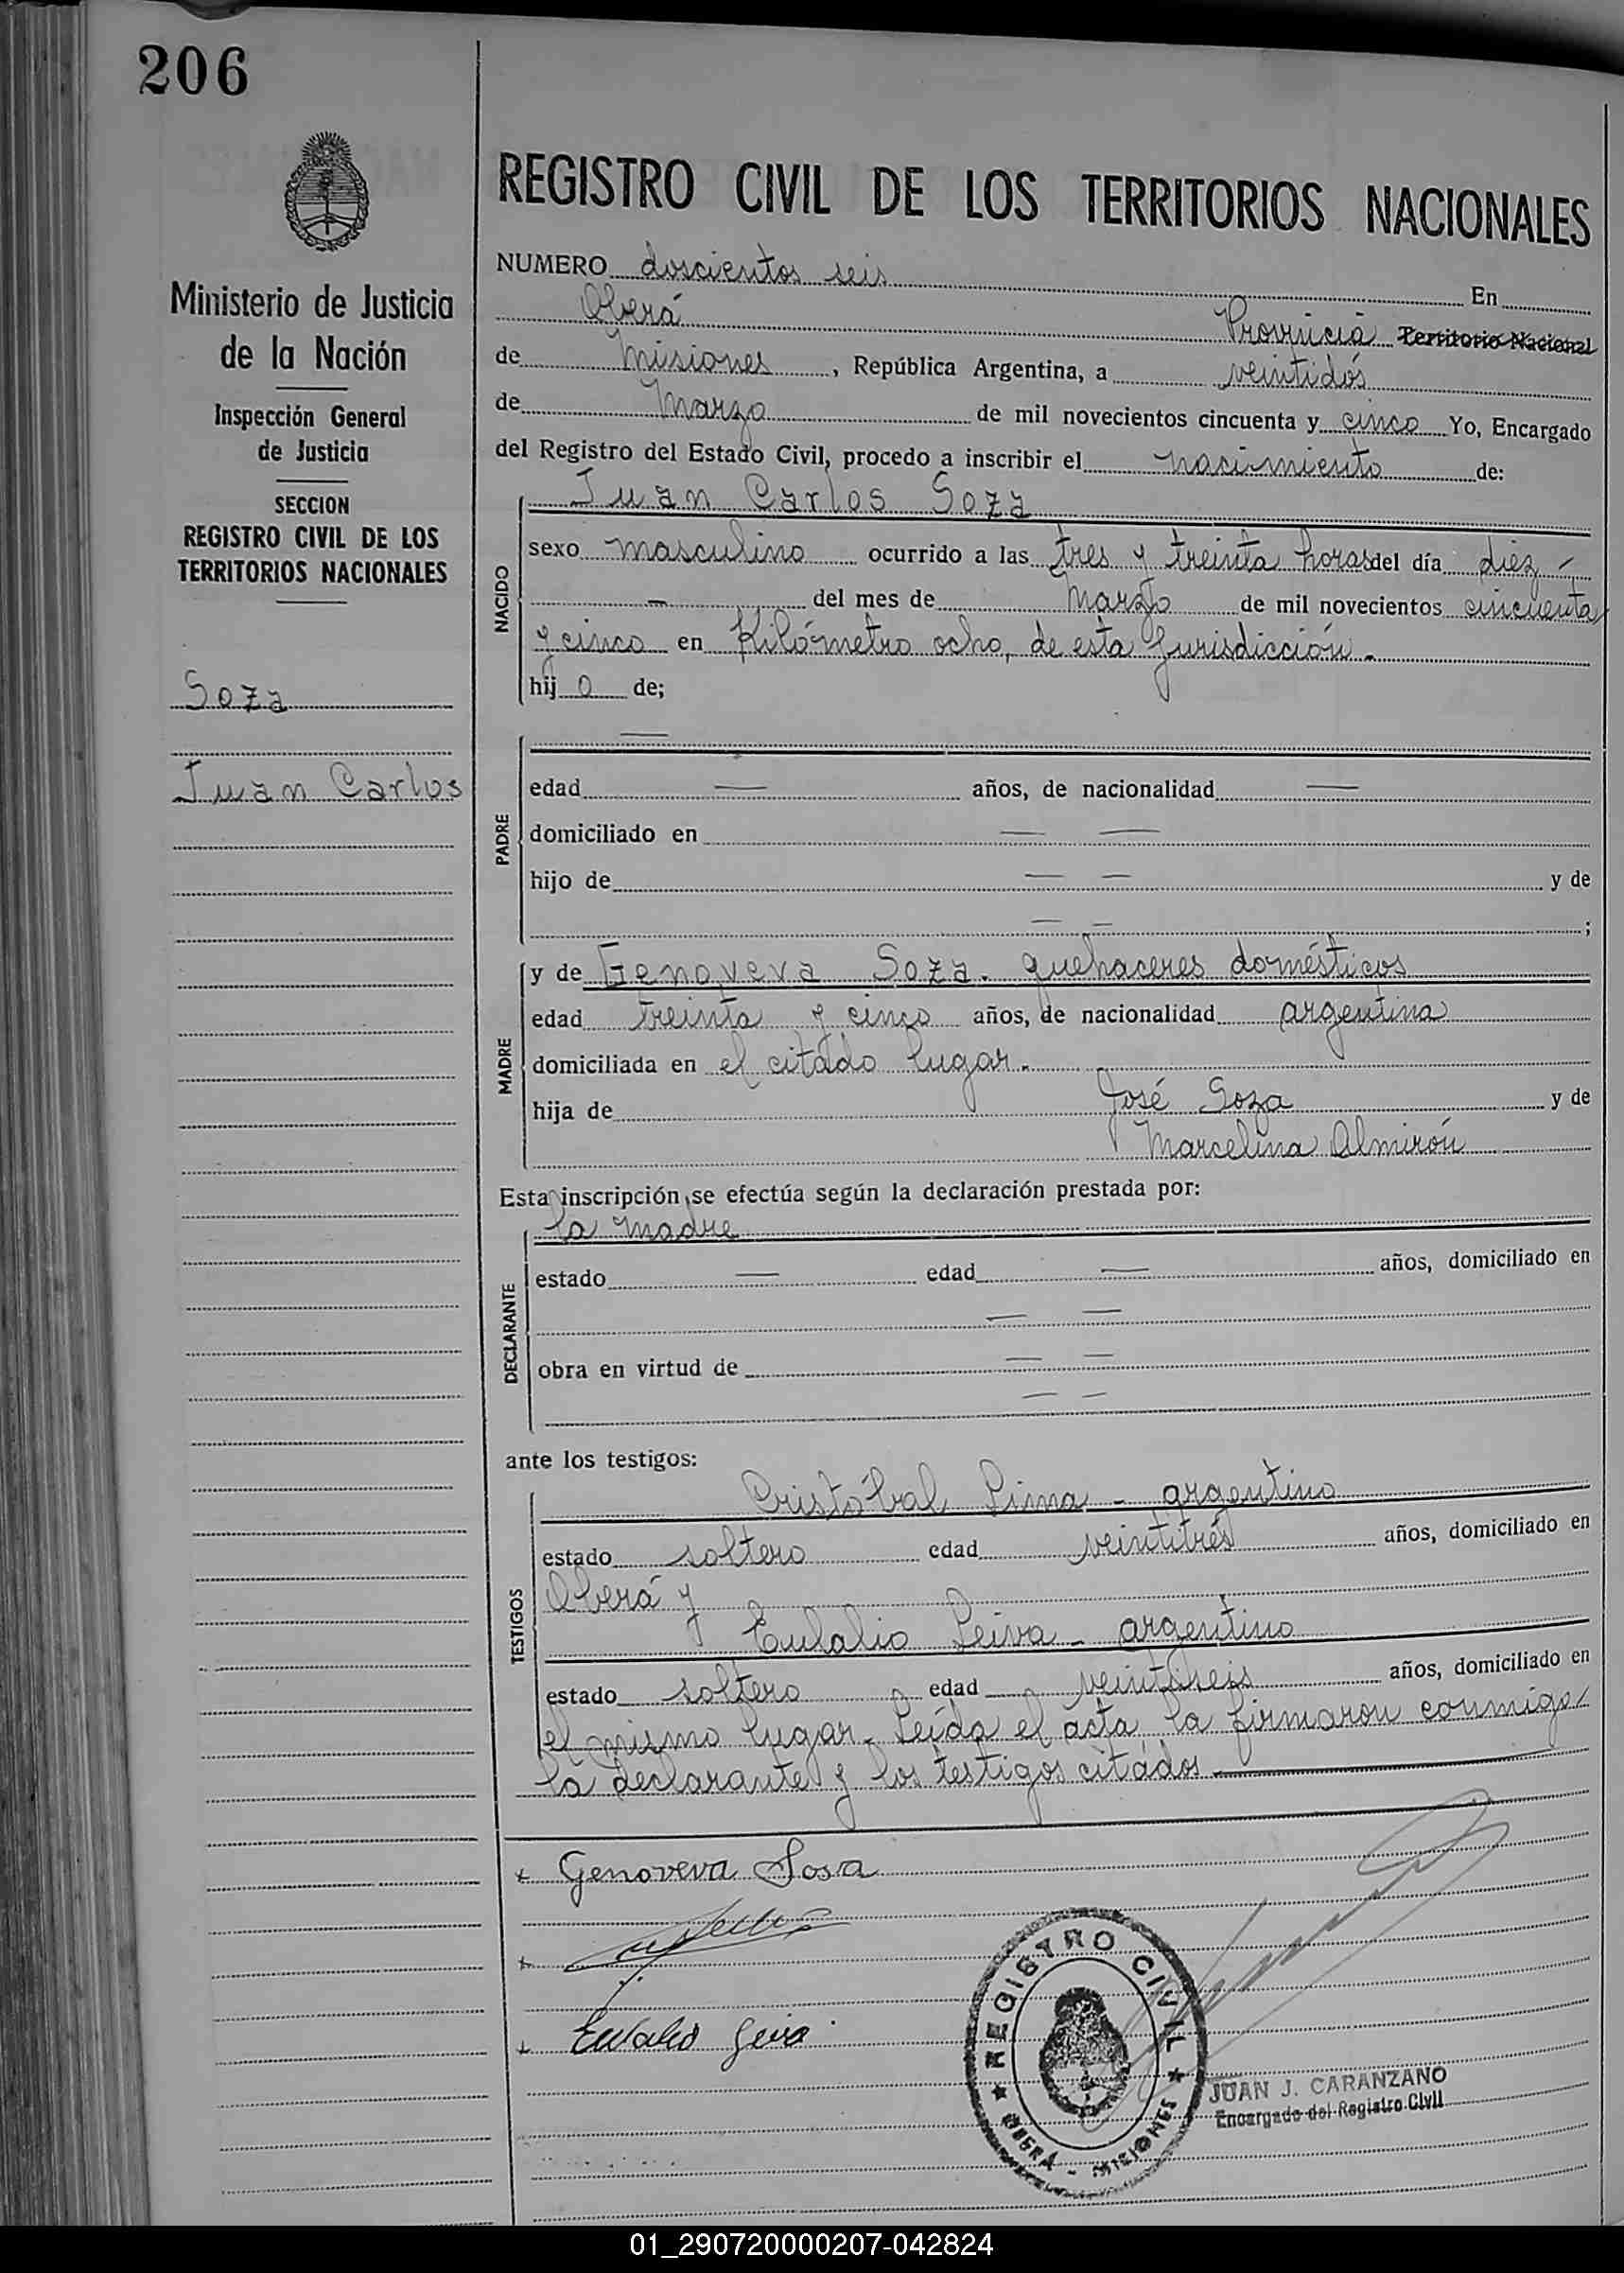 206
Ministerio de Justicia
de la Nación
Inspección General
de Justicia
SECCION
REGISTRO CIVIL DE LOS
TERRITORIOS NACIONALES
Soza
Juan Carlos
REGISTRO CIVIL DE LOS TERRITORIOS NACIONALES
NUMERO doscientos seis En
Oberá Provincia Territorio Nacional
de Misiones, República Argentina, a veintidós
de Marzo de mil novecientos cincuenta y cinco Yo, Encargado
del Registro del Estado Civil, procedo a inscribir el nacimiento de:
NACIDO
Juan Carlos Soza
sexo masculino ocurrido a las tres y treinta horas del día diez -
- del mes de Marzo de mil novecientos cincuenta
y cinco en Kilómetro ocho, de esta Jurisdicción.-
hij o de;
PADRE
—
edad — años, de nacionalidad —
domiciliado en — —
hijo de — — y de
— — ;
MADRE
y de Genoveva Soza. quehaceres domésticos
edad treinta y cinco años, de nacionalidad argentina
domiciliada en el citado lugar.-
hija de José Soza y de
Marcelina Almirón
Esta inscripción se efectúa según la declaración prestada por:
DECLARANTE
la madre
estado — edad — años, domiciliado en
— —
obra en virtud de — —
— —
ante los testigos:
TESTIGOS
Cristóbal Lima - argentino
estado soltero edad veintitrés años, domiciliado en
Oberá y
Eulalio Leiva - argentino
estado soltero edad veintiseis años, domiciliado en
el mismo lugar. Leída el acta la firmaron conmigo
la declarante y los testigos citados
x Genoveva Sosa
x
x Eulalio Leiva
REGISTRO CIVIL
OBERÁ - MISIONES
JUAN J. CARANZANO
Encargado del Registro Civil
01_290720000207-042824